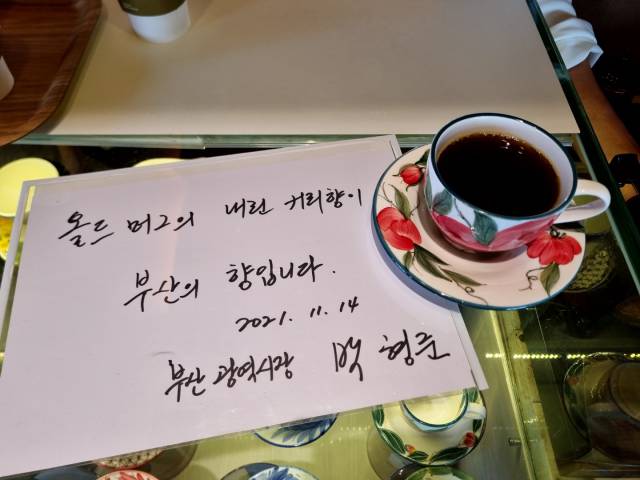 올드 머그의 내린 커피향이
부산의 향입니다.
2021. 11. 14
부산광역시장 박 형준